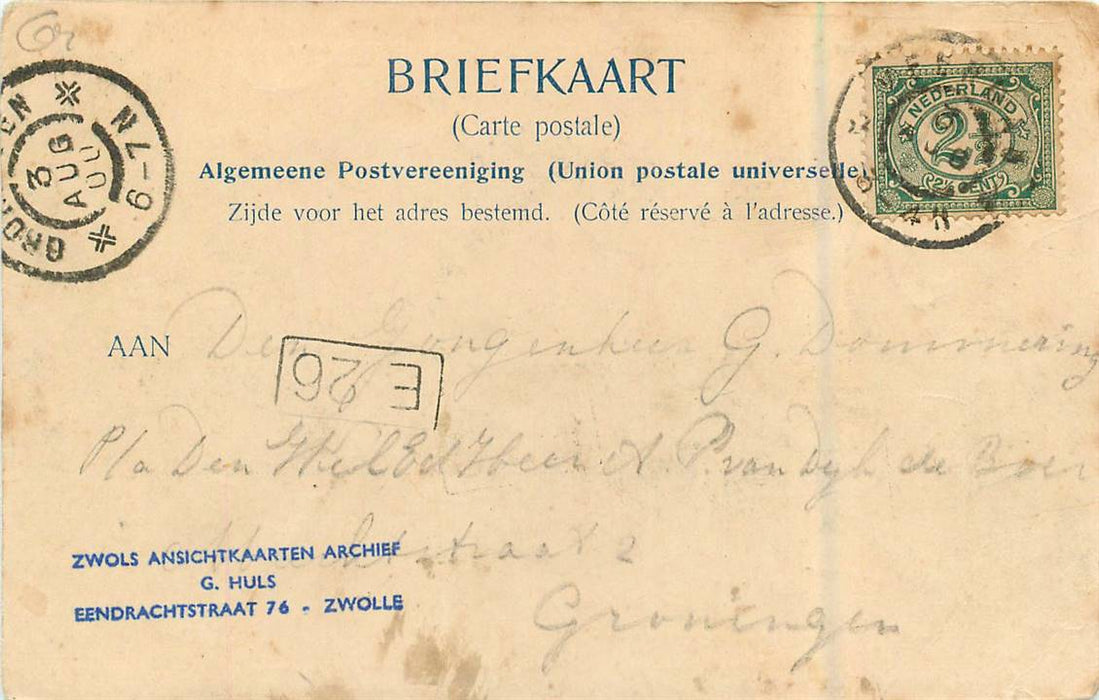 Gr
BRIEFKAART
(Carte postale)
Algemeene Postvereeniging (Union postale universelle)
Zijde voor het adres bestemd. (Côté réservé à l'adresse.)
7-9 N
3
AUG
00
NEDERLAND
2½
(2½ CENT)
AAN Den Jongenheer G. Dommering
E 26
P/a Den WelEdHeer A. P. van Dyk de Boer
straat 2
Groningen
ZWOLS ANSICHTKAARTEN ARCHIEF
G. HULS
EENDRACHTSTRAAT 76 - ZWOLLE